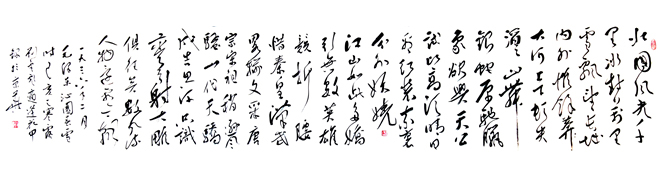 北国风光千
里冰封万里
雪飘望长城
内外惟余莽莽
大河上下顿失
滔滔山舞
银蛇原驰蜡
象欲与天公
试比高须晴日
看红装素裹
分外妖娆
江山如此多娇
引无数英雄
竞折腰
惜秦皇汉武
略输文采唐
宗宋祖稍逊风
骚一代天骄
成吉思汗只识
弯弓射大雕
俱往矣数风流
人物还看今朝
一九三六年二月
毛泽东沁园春雪
时己亥之寒露